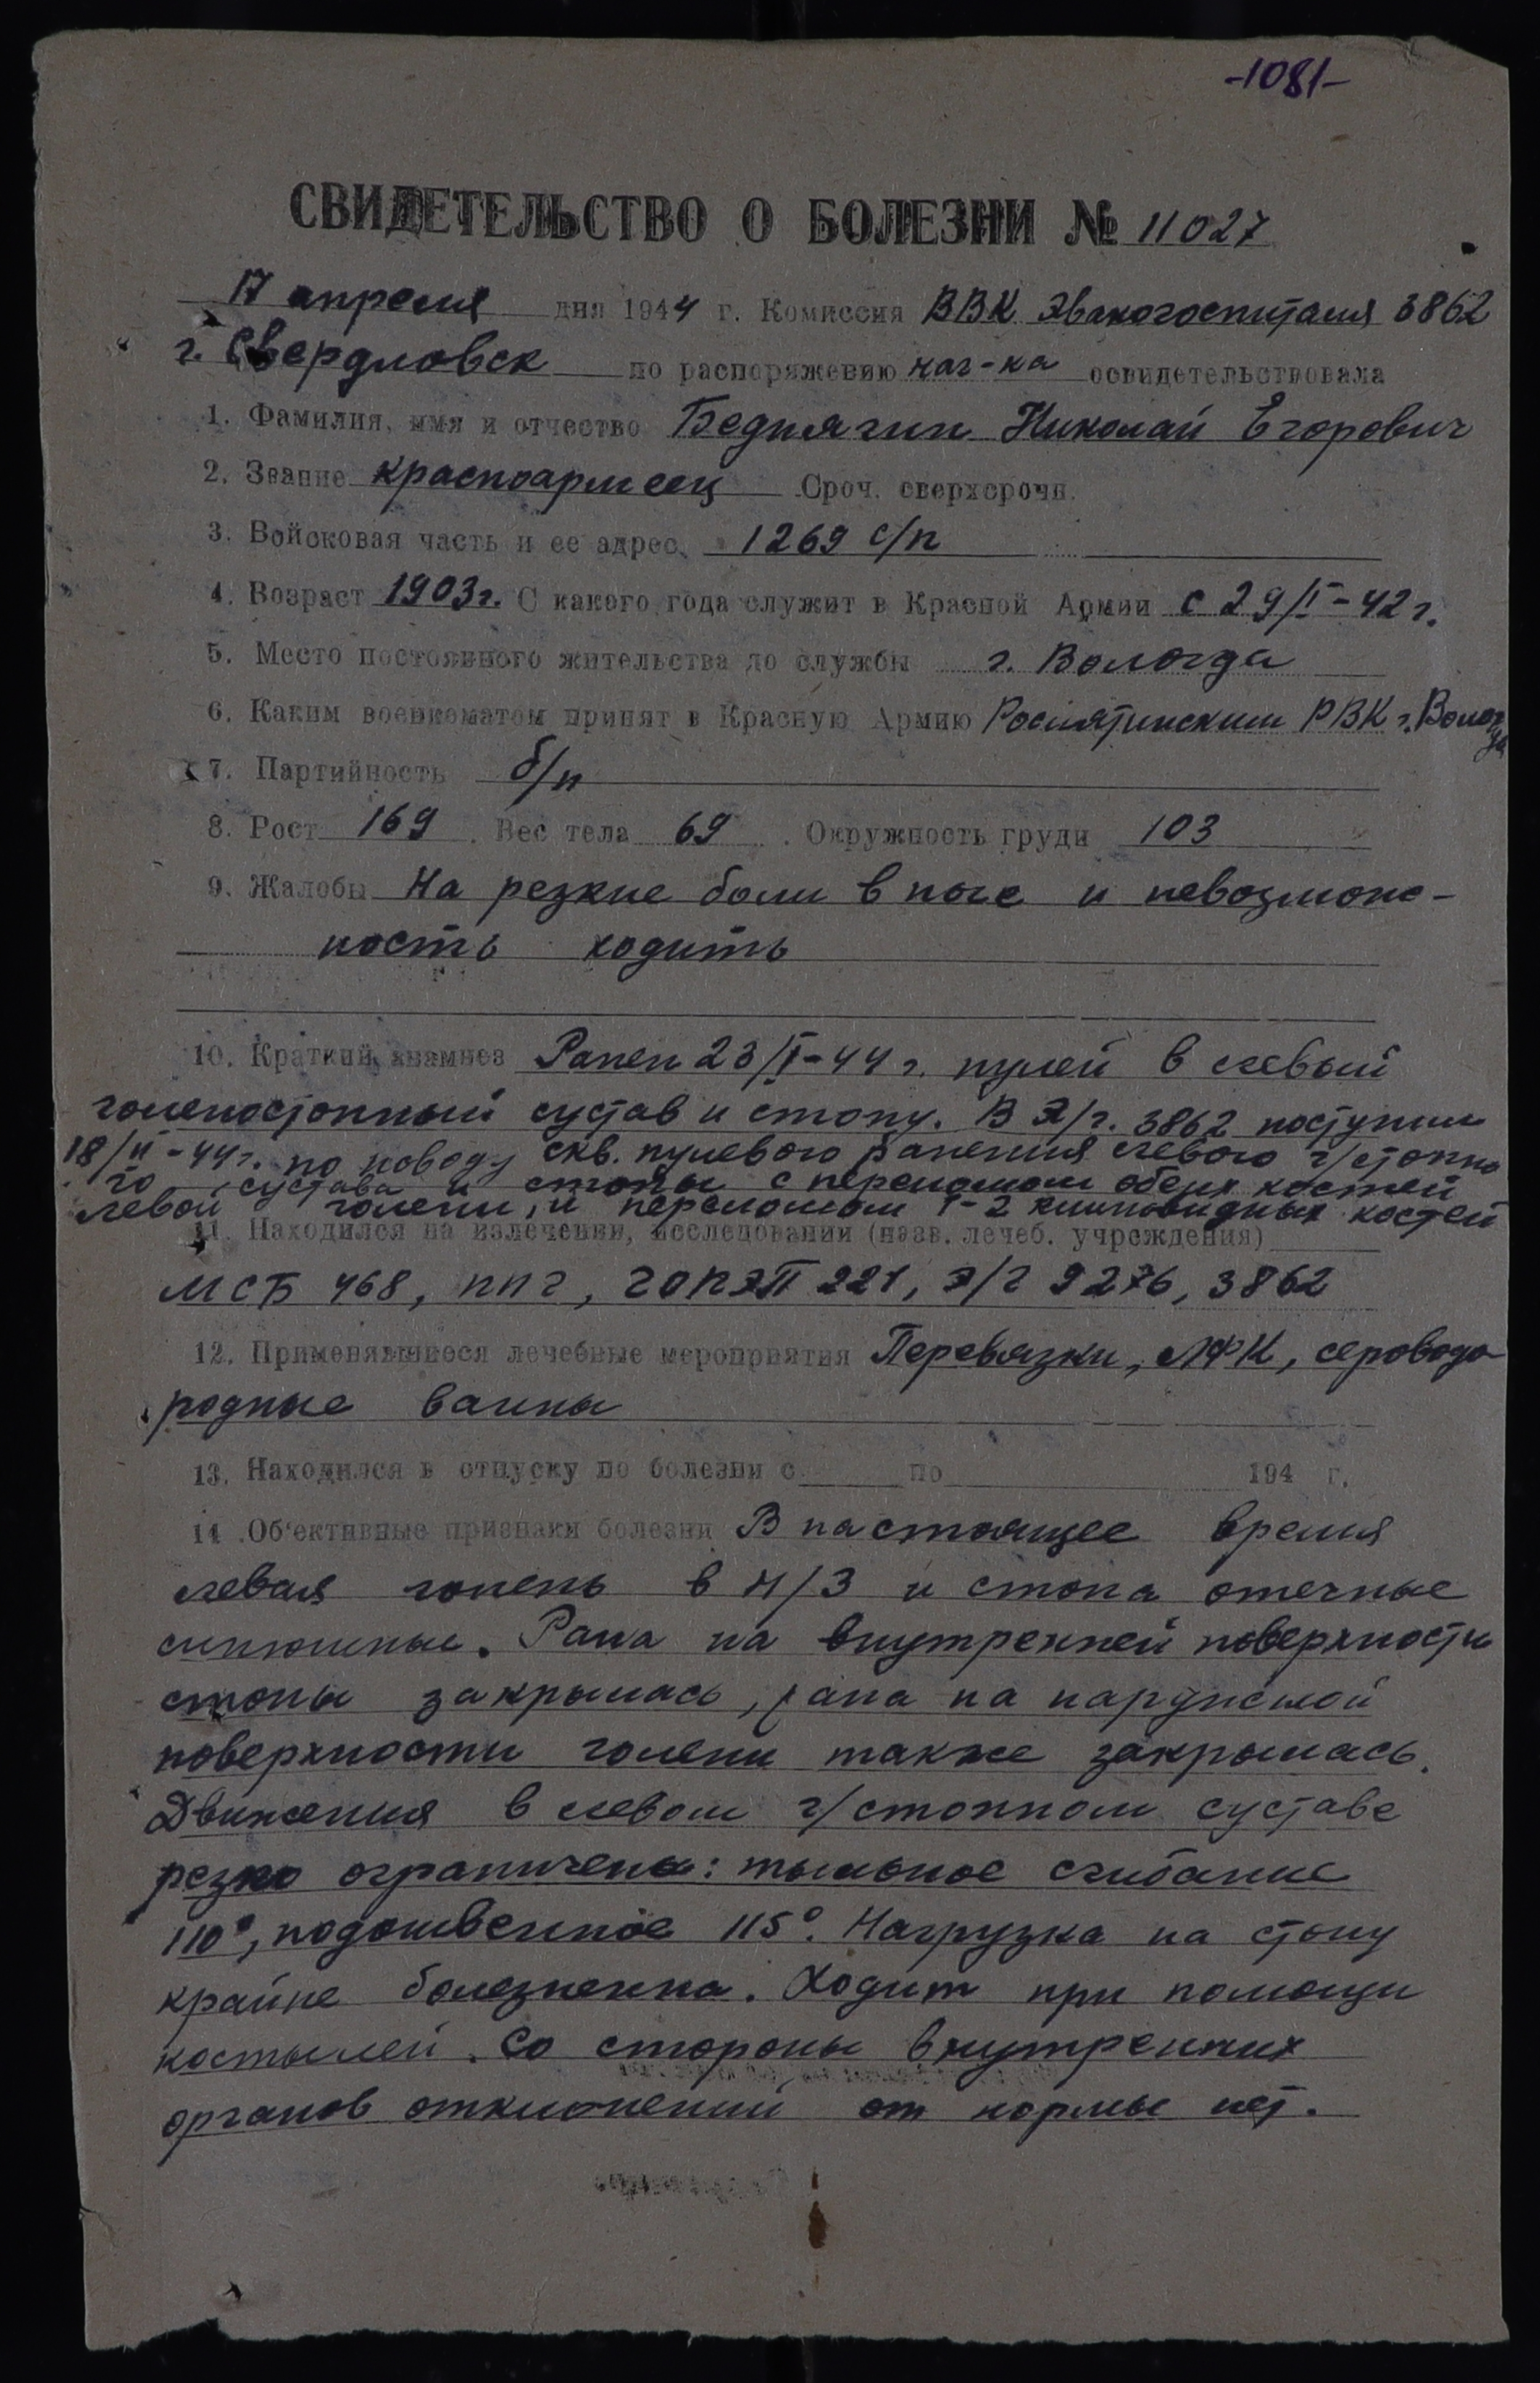 -1081-
СВИДЕТЕЛЬСТВО О БОЛЕЗНИ № 11027
17 апреля дня 1944 г. Комиссия ВВК Эвакогоспиталя 3862
г. Свердловск по распоряжению нач-ка освидетельствовала
1. Фамилия, имя и отчество Беднягин Николай Егорович
2. Звание красноармеец Сроч. сверхсрочн.
3. Войсковая часть и ее адрес 1269 с/п
4. Возраст 1903г. С какого года служит в Красной Армии с 29/I-42г.
5. Место постоянного жительства до службы г. Вологда
6. Каким военкоматом принят в Красную Армию Рослятинским РВК г. Вологда
7. Партийность б/п
8. Рост 169. Вес тела 69. Окружность груди 103
9. Жалобы На резкие боли в ноге и невозмож-
ность ходить
10. Краткий анамнез Ранен 23/I-44г. пулей в левый
голеностопный сустав и стопу. В Э/г. 3862 поступил
18/II-44г. по поводу скв. пулевого ранения левого г/стопно
го сустава и стопы с переломом обеих костей
левой голени, и переломом 1-2 клиновидных костей
11. Находился на излечении, исследовании (назв. лечеб. учреждения)
МСБ 468, ППГ, ГОПЭП 221, Э/Г 9276, 3862
12. Применявшиеся лечебные мероприятия Перевязки, ЛФК, сероводо
родные ванны
13. Находился в отпуску по болезни с по 194 г.
14. Об'ективные признаки болезни В настоящее время
левая голень в н/3 и стопа отечные
синюшные. Рана на внутренней поверхности
стопы закрылась, рана на наружной
поверхности голени также закрылась.
Движения в левом г/стопном суставе
резко ограничены: тыльное сгибание
110°, подошвенное 115°. Нагрузка на стопу
крайне болезненна. Ходит при помощи
костылей. Со стороны внутренних
органов отклонений от нормы нет.